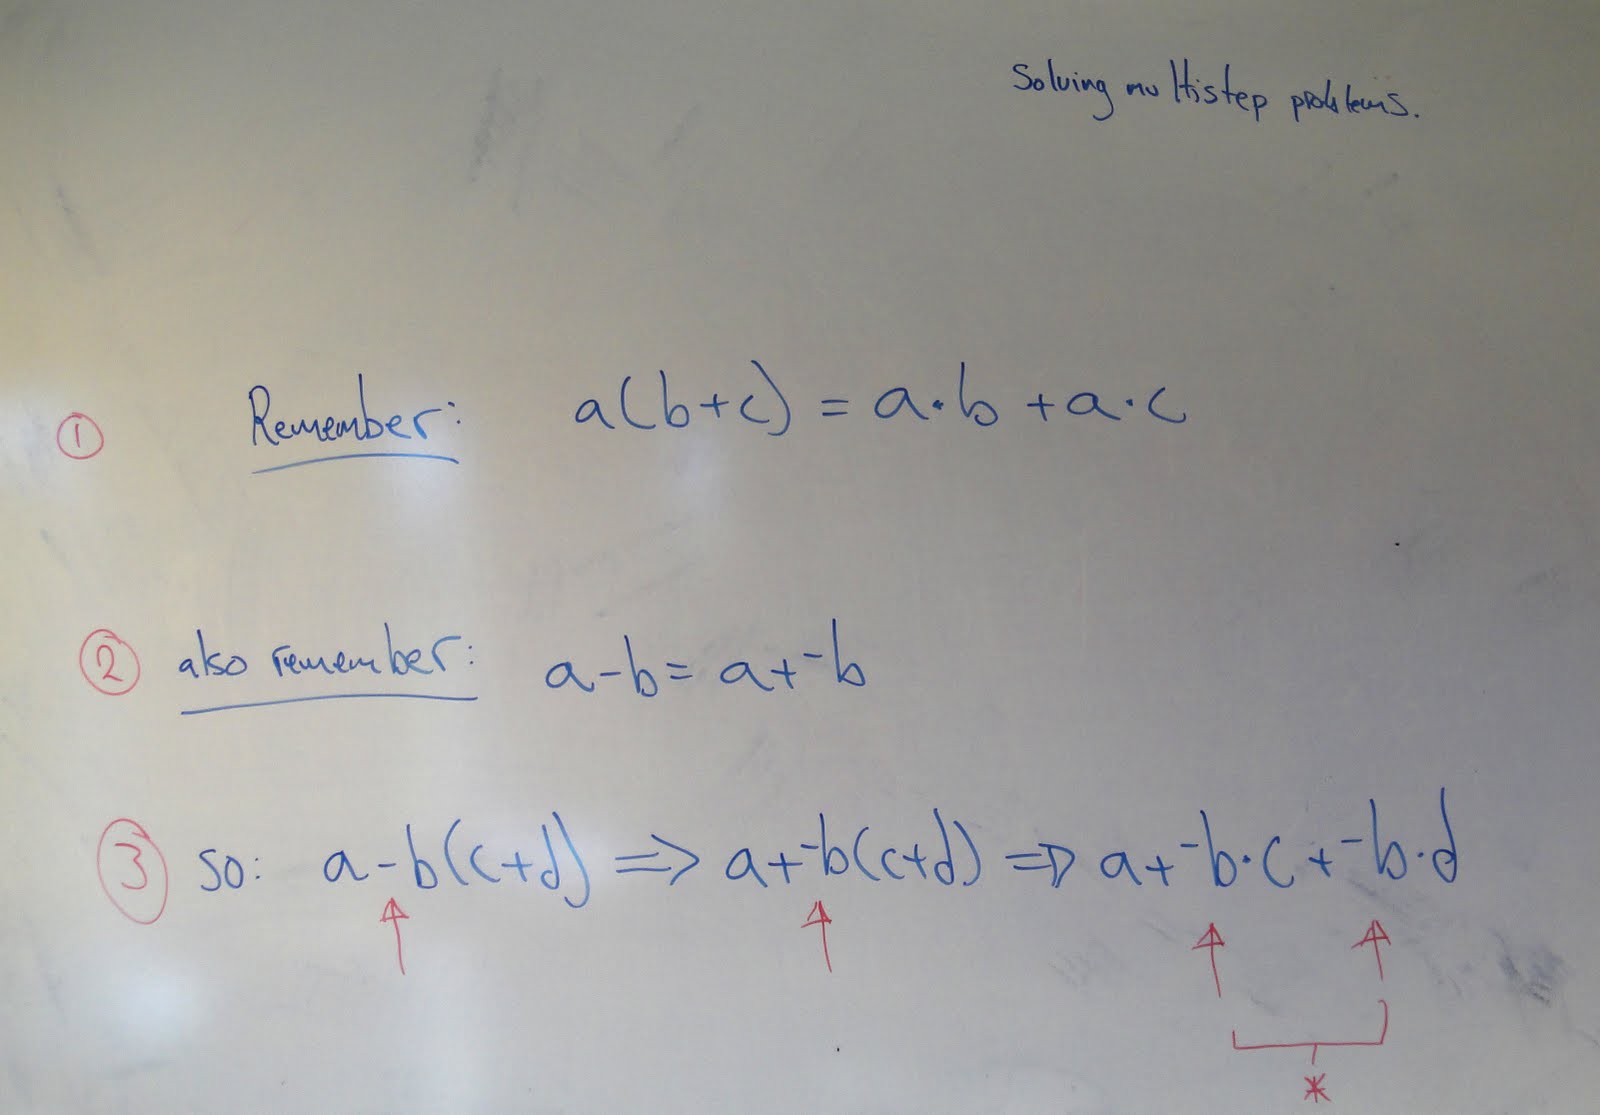 Solving multistep problems.
① Remember: a(b+c) = a·b + a·c
② also remember: a-b = a+⁻b
③ so: a-b(c+d) => a+⁻b(c+d) => a+⁻b·c+⁻b·d
*